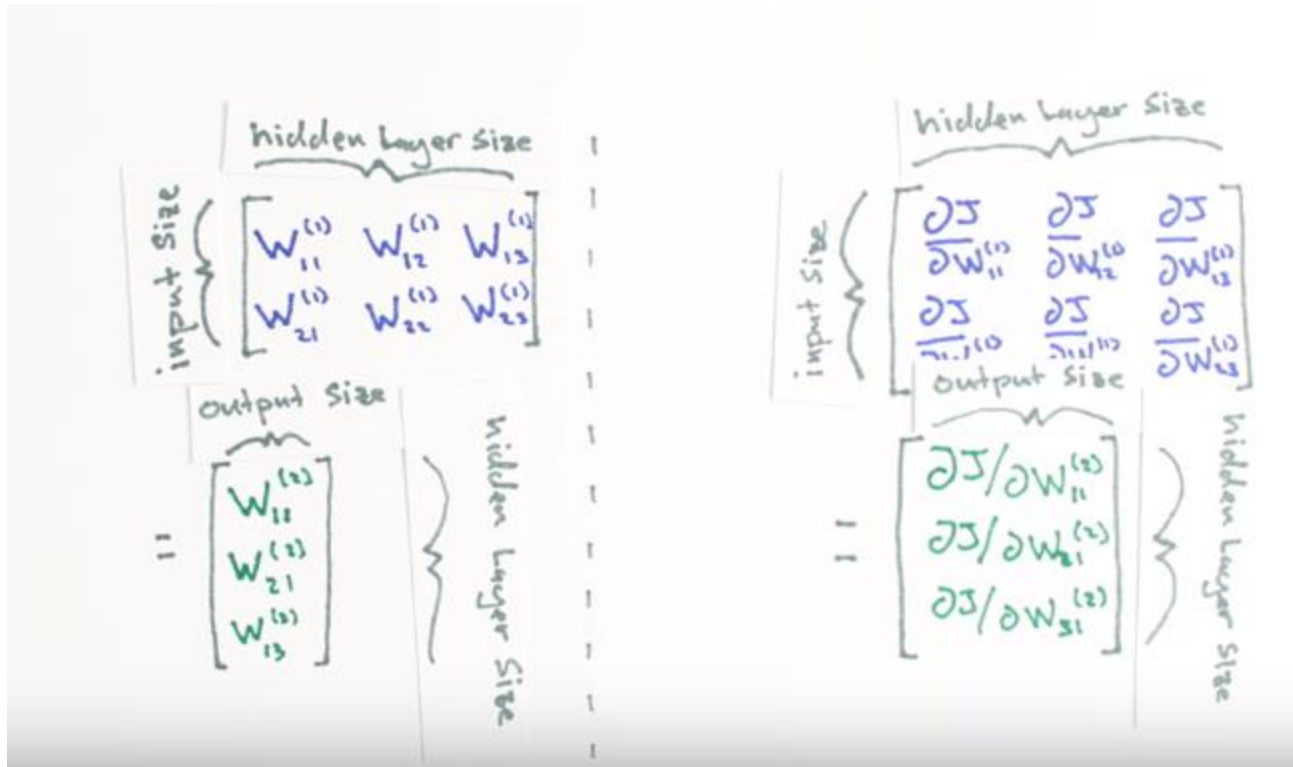 hidden Layer Size
input Size
W₁₁⁽¹⁾ W₁₂⁽¹⁾ W₁₃⁽¹⁾
W₂₁⁽¹⁾ W₂₂⁽¹⁾ W₂₃⁽¹⁾
output Size
=
W₁₁⁽²⁾
W₂₁⁽²⁾
W₁₃⁽²⁾
hidden Layer Size
hidden Layer Size
input Size
∂J/∂W₁₁⁽¹⁾ ∂J/∂W₁₂⁽¹⁾ ∂J/∂W₁₃⁽¹⁾
∂J ∂J ∂J/∂W₂₃⁽¹⁾
output Size
=
∂J/∂W₁₁⁽²⁾
∂J/∂W₂₁⁽²⁾
∂J/∂W₃₁⁽²⁾
hidden Layer Size